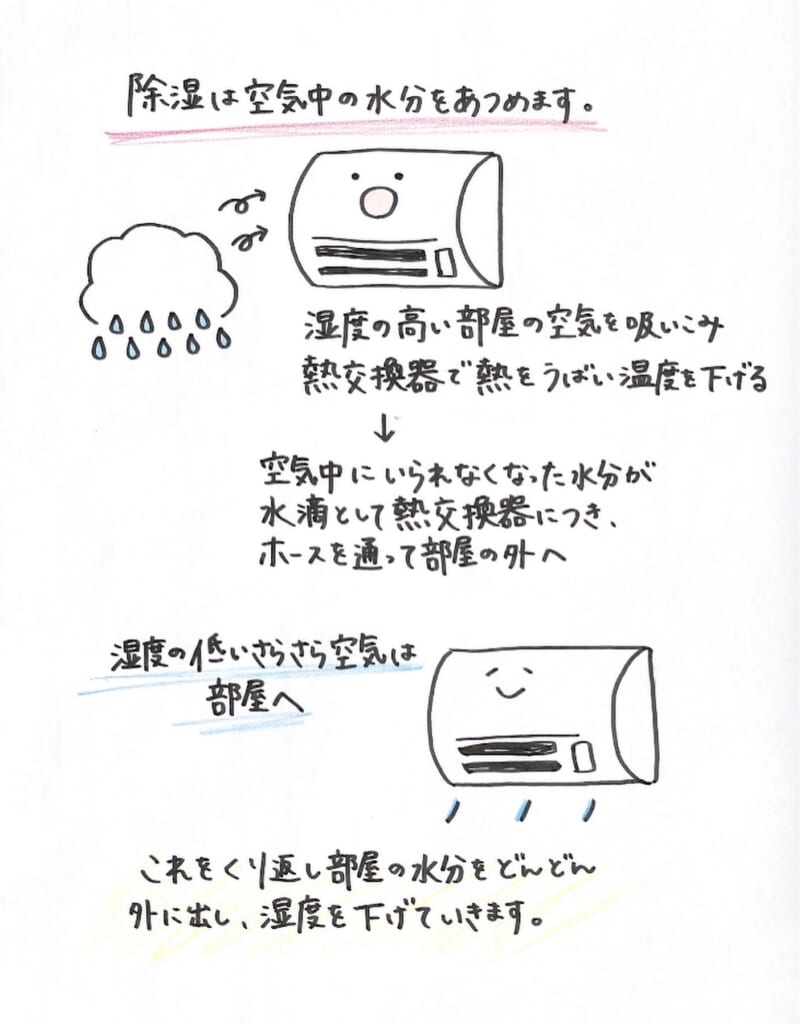 除湿は空気中の水分をあつめます。
湿度の高い部屋の空気を吸いこみ
熱交換器で熱をうばい温度を下げる
↓
空気中にいられなくなった水分が
水滴として熱交換器につき、
ホースを通って部屋の外へ
湿度の低いさらさら空気は
部屋へ
これをくり返し部屋の水分をどんどん
外に出し、湿度を下げていきます。